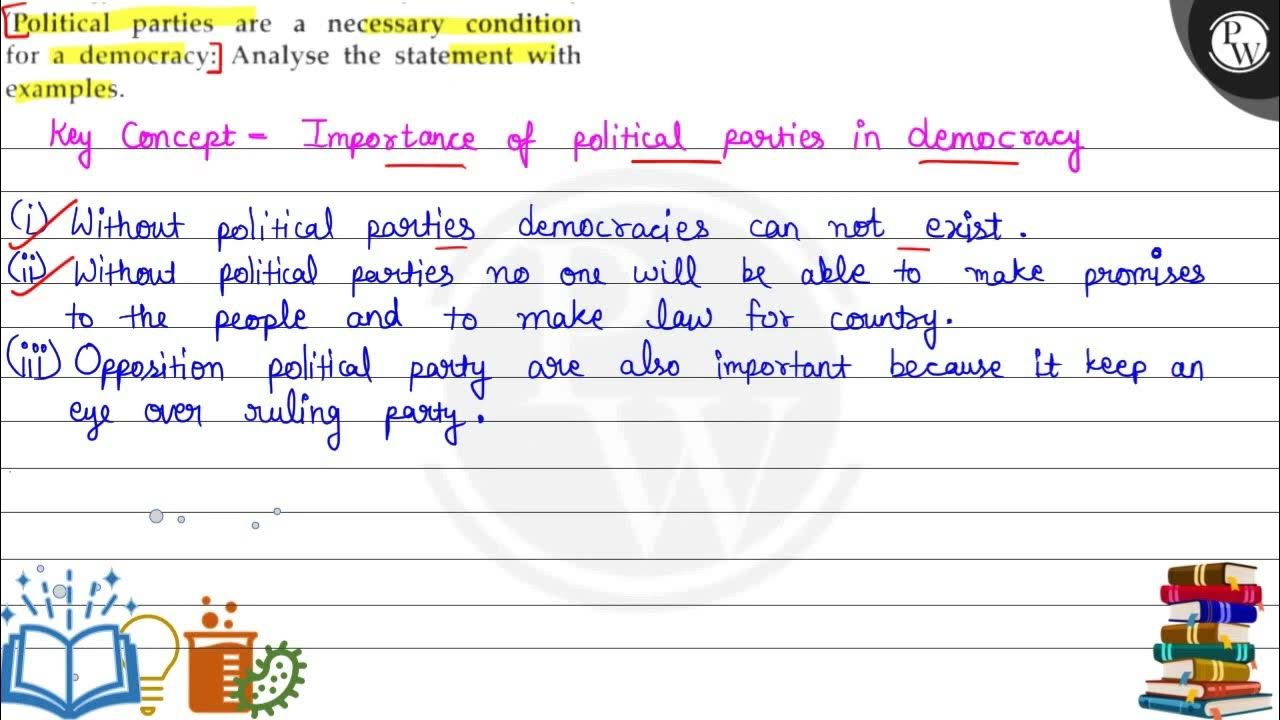 [Political parties are a necessary condition
for a democracy:] Analyse the statement with
examples.
PW
Key Concept - Importance of political parties in democracy
(i) Without political parties democracies can not exist.
(ii) Without political parties no one will be able to make promises
to the people and to make law for country.
(iii) Opposition political party are also important because it keep an
eye over ruling party.
PW